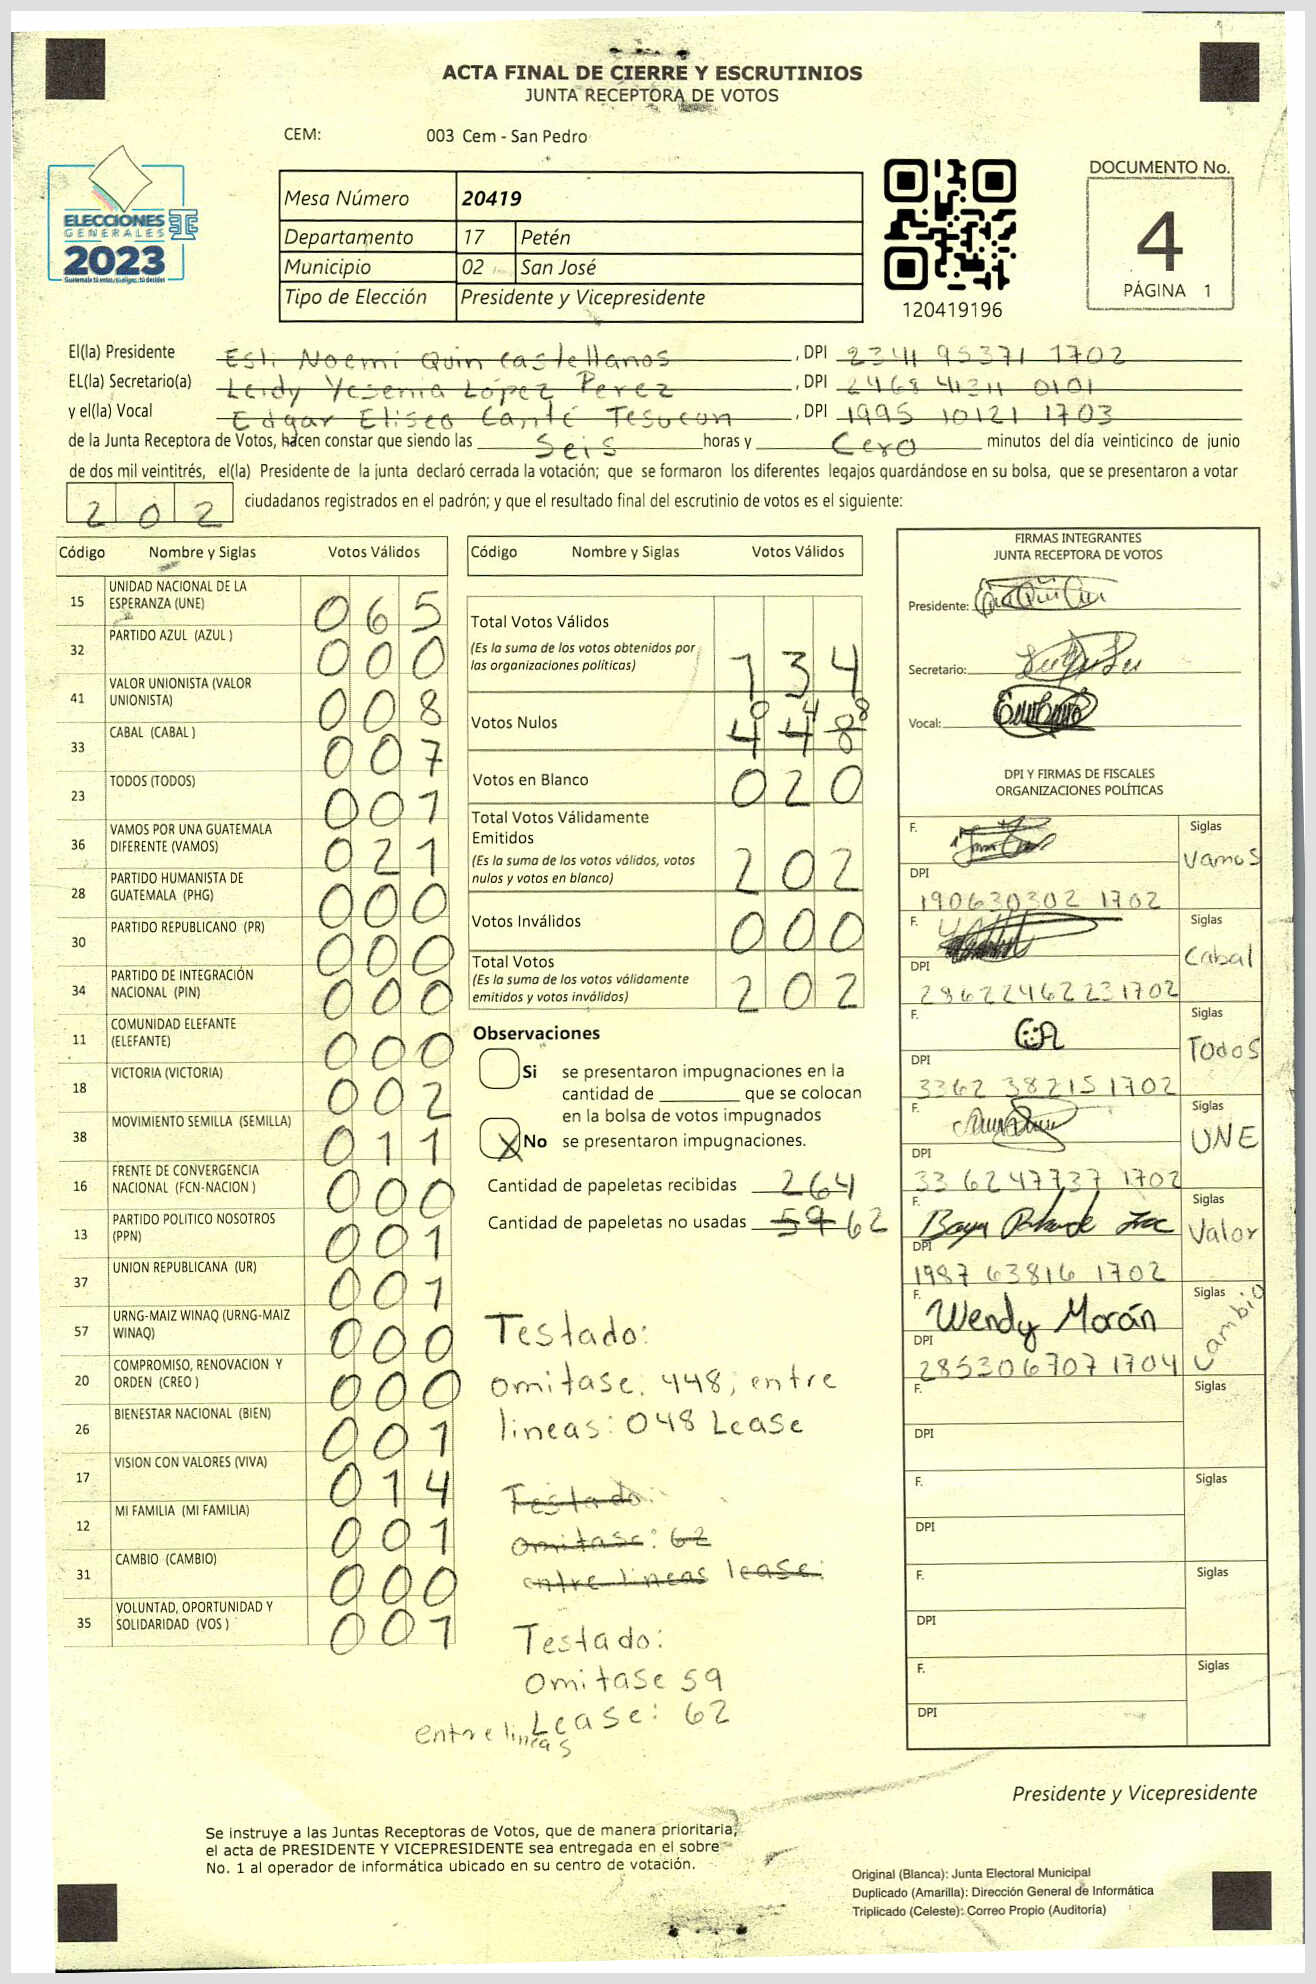 ACTA FINAL DE CIERRE Y ESCRUTINIOS
JUNTA RECEPTORA DE VOTOS
CEM: 003 Cem - San Pedro
ELECCIONES
GENERALES
2023
Mesa Número 20419
Departamento 17 Petén
Municipio 02 San José
Tipo de Elección Presidente y Vicepresidente
120419196
DOCUMENTO No.
4
PÁGINA 1
El(la) Presidente Esli Noemi Quin Castellanos, DPI 2341 95371 1702
EL(la) Secretario(a) Leidy Yesenia López Perez, DPI 2468 41311 0101
y el(la) Vocal Edgar Eliseo Canté Tesucun, DPI 1995 10121 1703
de la Junta Receptora de Votos, hacen constar que siendo las Seis horas y Cero minutos del día veinticinco de junio
de dos mil veintitrés, el(la) Presidente de la junta declaró cerrada la votación; que se formaron los diferentes legajos guardándose en su bolsa, que se presentaron a votar
202 ciudadanos registrados en el padrón; y que el resultado final del escrutinio de votos es el siguiente:
Código Nombre y Siglas Votos Válidos
15 UNIDAD NACIONAL DE LA ESPERANZA (UNE) 065
32 PARTIDO AZUL (AZUL ) 000
41 VALOR UNIONISTA (VALOR UNIONISTA) 008
33 CABAL (CABAL ) 007
23 TODOS (TODOS) 001
36 VAMOS POR UNA GUATEMALA DIFERENTE (VAMOS) 021
28 PARTIDO HUMANISTA DE GUATEMALA (PHG) 000
30 PARTIDO REPUBLICANO (PR) 000
34 PARTIDO DE INTEGRACIÓN NACIONAL (PIN) 000
11 COMUNIDAD ELEFANTE (ELEFANTE) 000
18 VICTORIA (VICTORIA) 002
38 MOVIMIENTO SEMILLA (SEMILLA) 011
16 FRENTE DE CONVERGENCIA NACIONAL (FCN-NACION ) 000
13 PARTIDO POLITICO NOSOTROS (PPN) 001
37 UNION REPUBLICANA (UR) 001
57 URNG-MAIZ WINAQ (URNG-MAIZ WINAQ) 000
20 COMPROMISO, RENOVACION Y ORDEN (CREO ) 000
26 BIENESTAR NACIONAL (BIEN) 001
17 VISION CON VALORES (VIVA) 014
12 MI FAMILIA (MI FAMILIA) 001
31 CAMBIO (CAMBIO) 000
35 VOLUNTAD, OPORTUNIDAD Y SOLIDARIDAD (VOS ) 001
Código Nombre y Siglas Votos Válidos
Total Votos Válidos
(Es la suma de los votos obtenidos por las organizaciones políticas) 134
Votos Nulos 448 048
Votos en Blanco 020
Total Votos Válidamente Emitidos
(Es la suma de los votos válidos, votos nulos y votos en blanco) 202
Votos Inválidos 000
Total Votos
(Es la suma de los votos válidamente emitidos y votos inválidos) 202
Observaciones
Si se presentaron impugnaciones en la
cantidad de ________ que se colocan
en la bolsa de votos impugnados
X No se presentaron impugnaciones.
Cantidad de papeletas recibidas 264
Cantidad de papeletas no usadas 59 62
Testado:
omitase. 448; entre
lineas: 048 Lease
Testado:
omitase: 62
entre lineas lease:
Testado:
omitase 59
Lease: 62
entre lineas
FIRMAS INTEGRANTES
JUNTA RECEPTORA DE VOTOS
Presidente:
Secretario:
Vocal:
DPI Y FIRMAS DE FISCALES
ORGANIZACIONES POLÍTICAS
F. Siglas
Vamos
DPI
190630302 1702
F. Siglas
Cabal
DPI
28622462231702
F. Siglas
Todos
DPI
3362 38215 1702
F. Siglas
UNE
DPI
33 6247737 1702
F. Siglas
Valor
DPI
1987 63816 1702
F. Wendy Morán Siglas
Cambio
DPI
285306707 1704
F. Siglas
DPI
F. Siglas
DPI
F. Siglas
DPI
F. Siglas
DPI
Presidente y Vicepresidente
Se instruye a las Juntas Receptoras de Votos, que de manera prioritaria,
el acta de PRESIDENTE Y VICEPRESIDENTE sea entregada en el sobre
No. 1 al operador de informática ubicado en su centro de votación.
Original (Blanca): Junta Electoral Municipal
Duplicado (Amarilla): Dirección General de Informática
Triplicado (Celeste): Correo Propio (Auditoría)